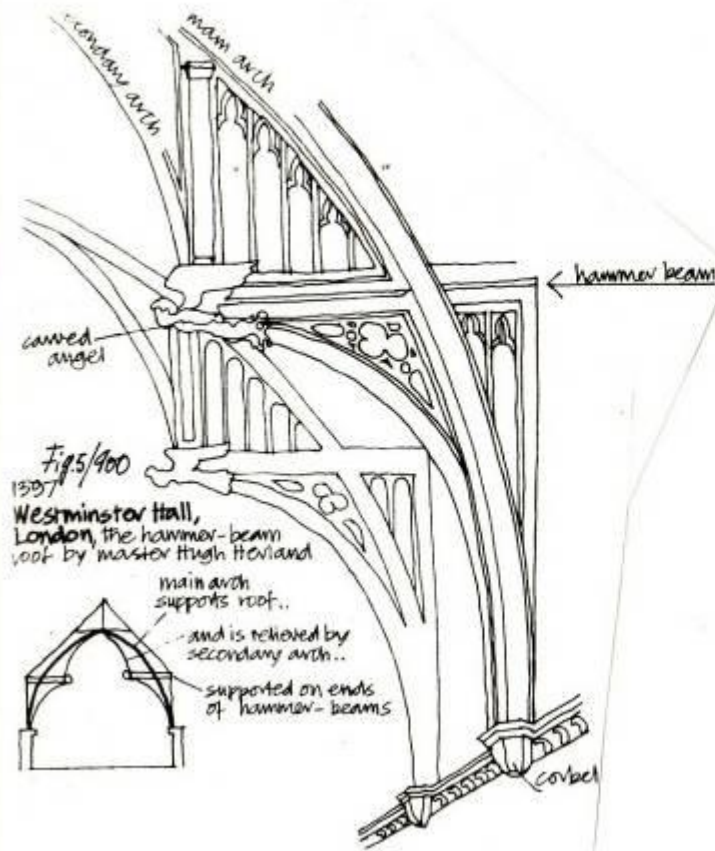 secondary arch
main arch
hammer beam
carved
angel
Fig.5/900
1397
Westminster Hall,
London, the hammer-beam
roof by master Hugh Herland
main arch
supports roof..
and is relieved by
secondary arch..
supported on ends
of hammer-beams
corbel